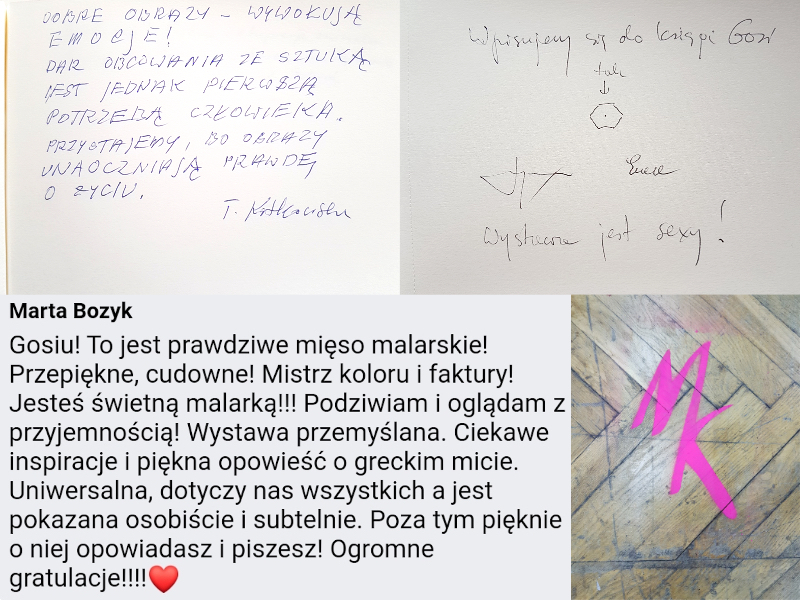 DOBRE OBRAZY – WYWOŁUJĄ
EMOCJE!
DAR OBCOWANIA ZE SZTUKĄ
JEST JEDNAK PIERWSZĄ
POTRZEBĄ CZŁOWIEKA.
PRZYSTAJEMY, BO OBRAZY
UNAOCZNIAJĄ PRAWDĘ
O ŻYCIU.
T.
Wpisujemy się do księgi Gosi
tak
↓
Wystawa jest sexy!
Marta Bozyk
Gosiu! To jest prawdziwe mięso malarskie!
Przepiękne, cudowne! Mistrz koloru i faktury!
Jesteś świetną malarką!!! Podziwiam i oglądam z
przyjemnością! Wystawa przemyślana. Ciekawe
inspiracje i piękna opowieść o greckim micie.
Uniwersalna, dotyczy nas wszystkich a jest
pokazana osobiście i subtelnie. Poza tym pięknie
o niej opowiadasz i piszesz! Ogromne
gratulacje!!!!❤️
MK